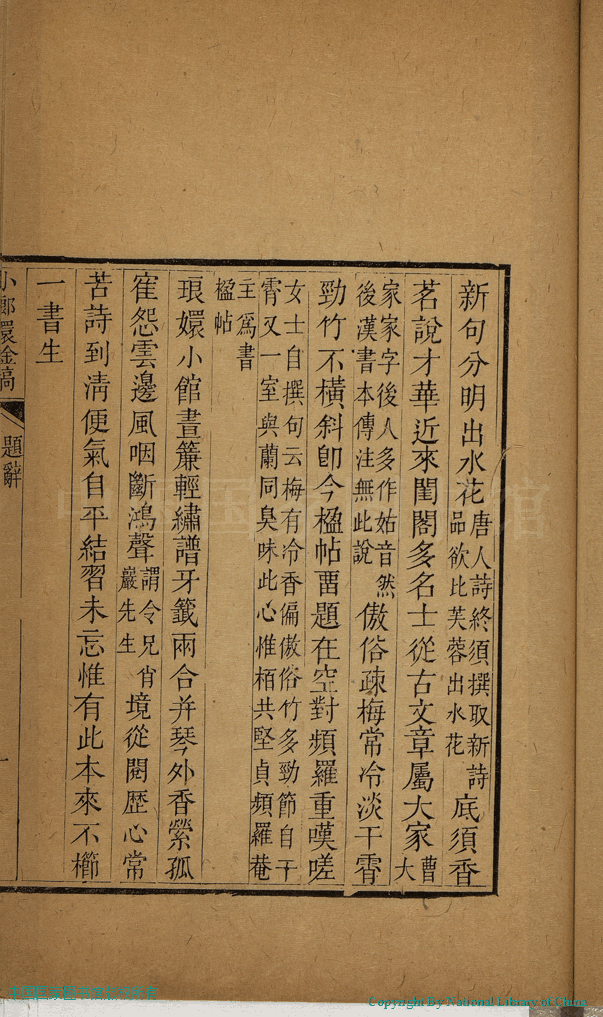 新句分明出水花唐人詩終須撰取新詩品欲比芙蓉出水花底須香
茗說才華近來閨閣多名士從古文章屬大家曹大
家家字後人多作姑音然後漢書本傳注無此說傲俗疎梅常冷淡干霄
勁竹不橫斜卽今楹帖畱題在空對頻羅重嘆嗟
女士自撰句云梅有冷香偏傲俗竹多勁節自干霄又一室與蘭同臭味此心惟栢共堅貞頻羅菴
主爲書楹帖
琅嬛小館晝簾輕繡譜牙籤兩合并琴外香縈孤
隺怨雲邊風咽斷鴻聲謂令兄肖巖先生境從閱歷心常
苦詩到淸便氣自平結習未忘惟有此本來不櫛
一書生
小郞嬛金稿
題辭
一
Copyright By National Library of China